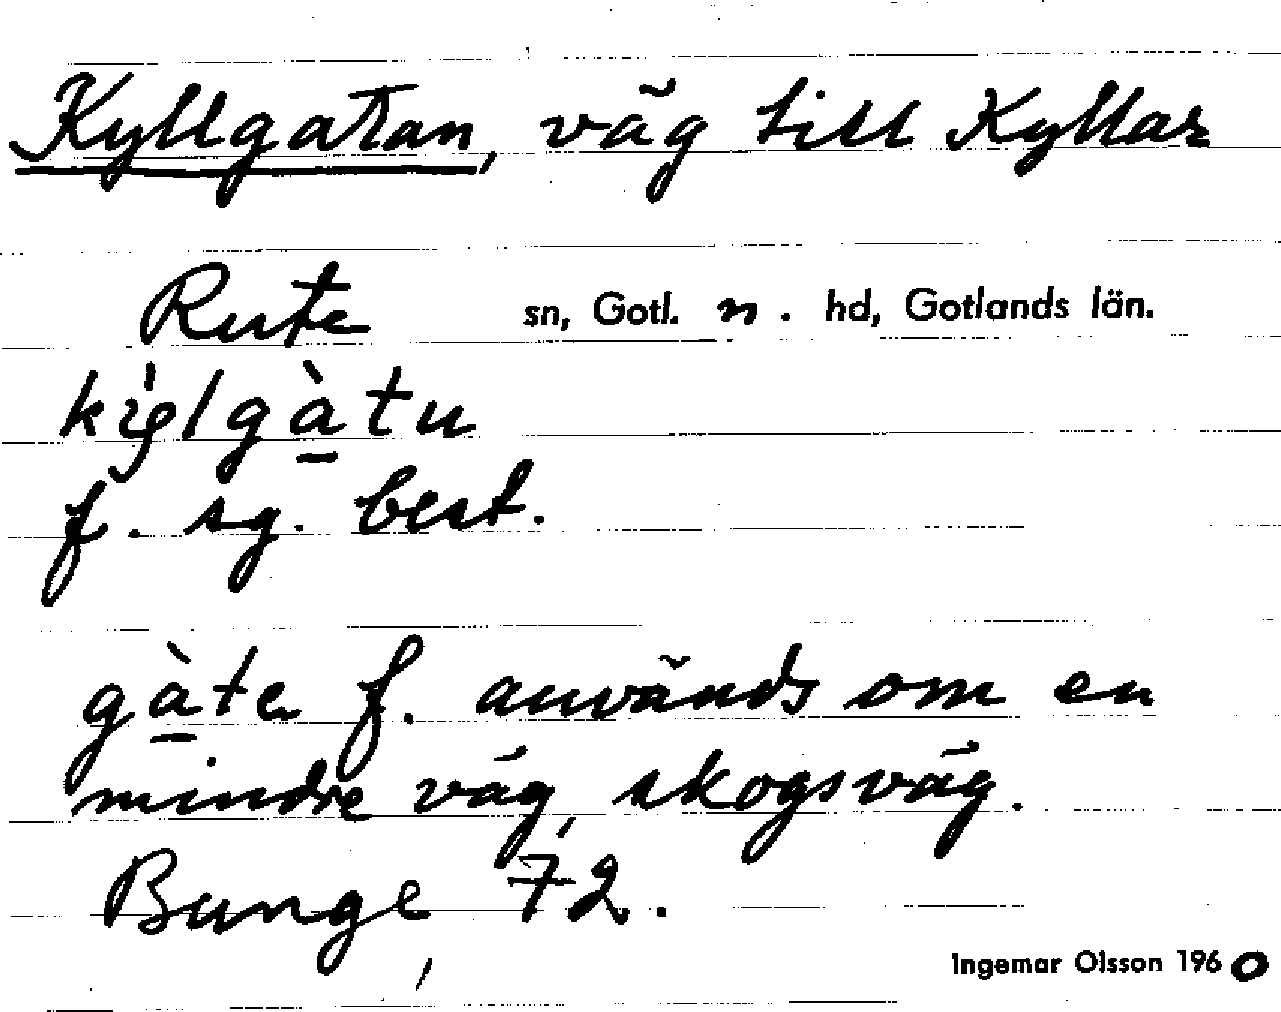 Kyllgatan, väg till Kyllar
Rute sn, Gotl. n. hd, Gotlands län.
f. sg. best.
gà̱te f. används om en
mindre väg, skogsväg.
Bunge, 72.
Ingemar Olsson 1960